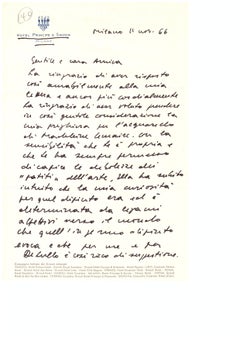 HOTEL PRINCIPE E SAVOIA
Milano 11 nov. 66
Gentile e cara Amica
La ringrazio di aver risposto
così amabilmente alla mia
lettera e ancor più cordialmente
La ringrazio di aver voluto prendere
in così gentile considerazione la
mia preghiera per l'acquarello
di Madeleine Lemaire. Con la
sensibilità che le è propria e
che le ha sempre permesso
di capire le debolezze dei
"patiti" dell'arte, Ella ha subito
intuito che la mia curiosità
per quel dipinto era ed è
determinata da legami
affettivi verso il mondo
che quell'ingenuo dipinto
evoca e che per me e per
è così ricco di suggestione.